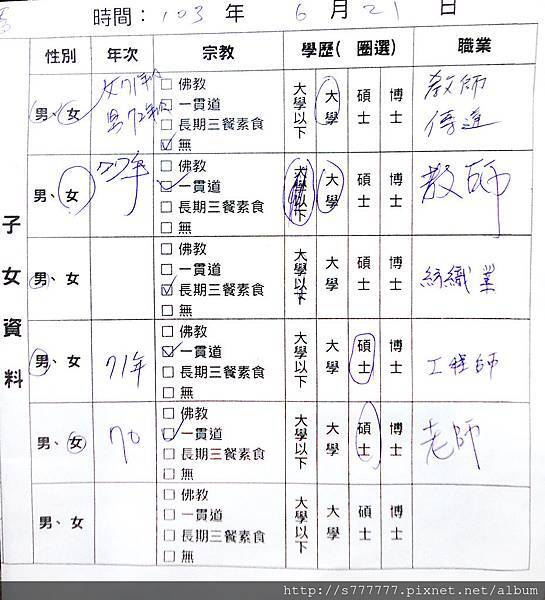 時間：103 年 6 月 21 日
性別 年次 宗教 學歷( 圈選) 職業
子女資料
男、女 女71年 男72年 □ 佛教 大學以下 大學 碩士 博士 教師
□ 一貫道 傳道
□ 長期三餐素食
☑ 無
男、女 77年 □ 佛教 大學以下 大學 碩士 博士 教師
☑ 一貫道
□ 長期三餐素食
□ 無
男、女 □ 佛教 大學以下 大學 碩士 博士 紡織業
□ 一貫道
☑ 長期三餐素食
□ 無
男、女 71年 □ 佛教 大學以下 大學 碩士 博士 工程師
☑ 一貫道
□ 長期三餐素食
□ 無
男、女 70 □ 佛教 大學以下 大學 碩士 博士 老師
☑ 一貫道
□ 長期三餐素食
□ 無
男、女 □ 佛教 大學以下 大學 碩士 博士
□ 一貫道
□ 長期三餐素食
□ 無
http://s777777.pixnet.net/album